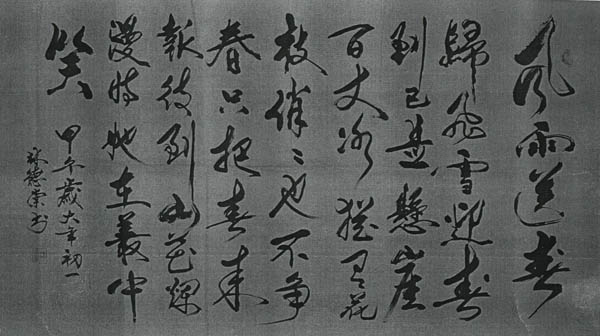 风雨送春
歸飛雪迎春
到已是懸崖
百丈冰猶有花
枝俏〻也不争
春只把春来
報待到山花爛
漫时她在叢中
笑
甲午歲大年初一
德书